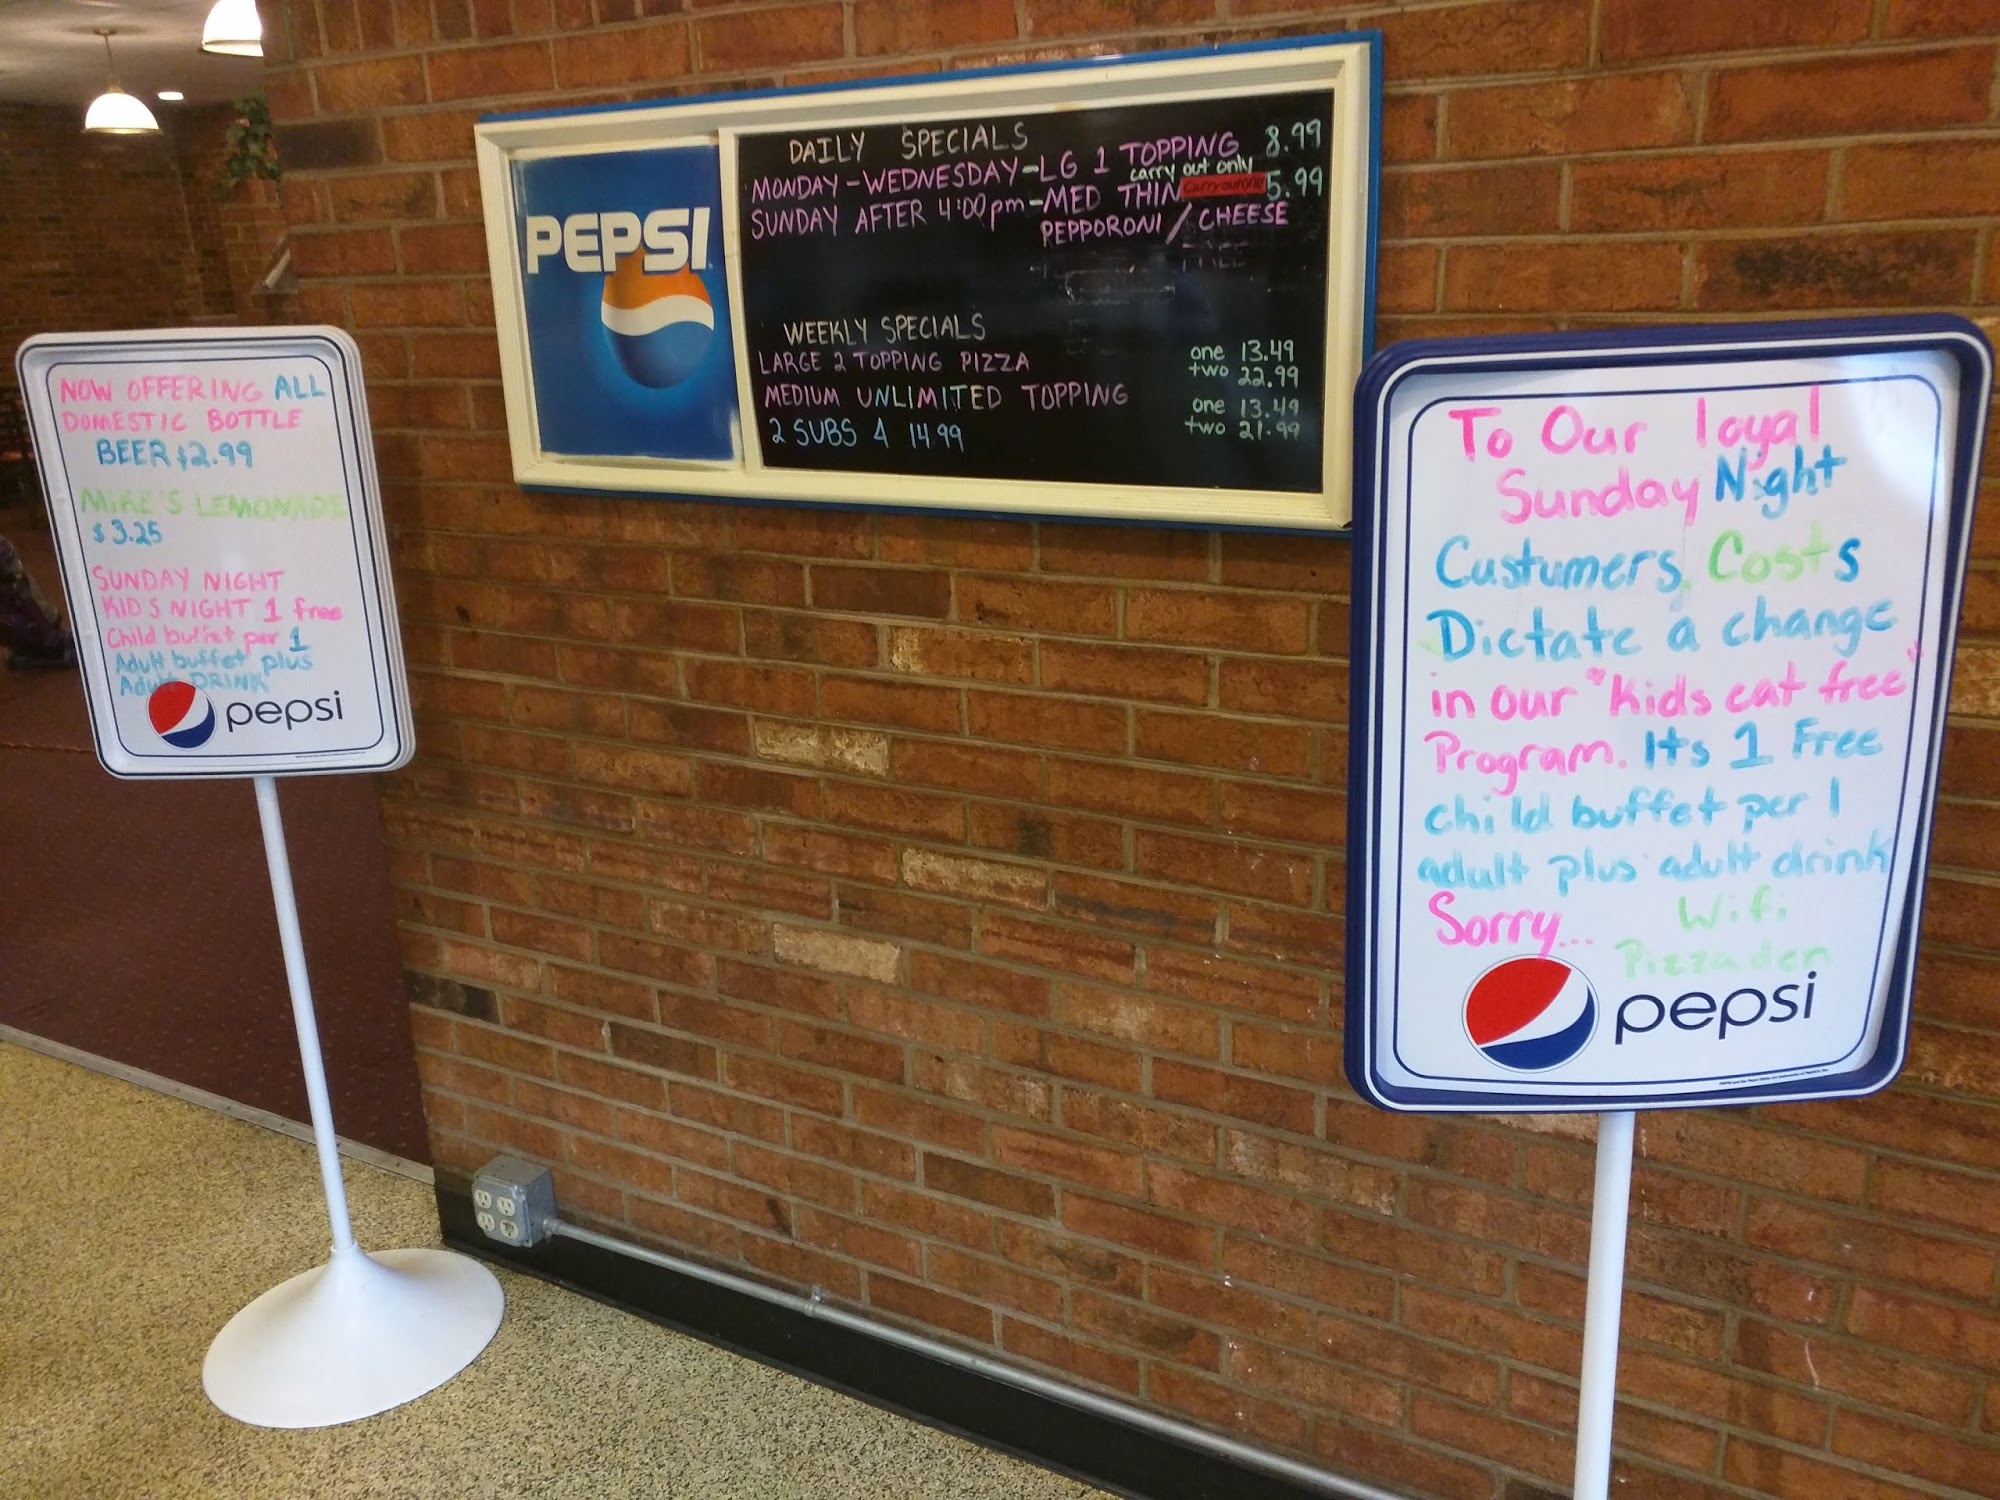 NOW OFFERING ALL
DOMESTIC BOTTLE
BEER $2.99
MIKE'S LEMONADE
$3.25
SUNDAY NIGHT
KID'S NIGHT 1 free
Child buffet per 1
Adult buffet plus
Adult DRINK
pepsi
PEPSI
DAILY SPECIALS
MONDAY-WEDNESDAY-LG 1 TOPPING 8.99
carry out only
SUNDAY AFTER 4:00pm-MED THIN carry out only 5.99
PEPPORONI / CHEESE
WEEKLY SPECIALS
LARGE 2 TOPPING PIZZA one 13.49
two 22.99
MEDIUM UNLIMITED TOPPING one 13.49
two 21.99
2 SUBS 4 14.99
To Our loyal
Sunday Night
Custumers, Costs
Dictate a change
in our "Kids eat free"
Program. Its 1 Free
child buffet per 1
adult plus adult drink
Sorry... Wifi
Pizzaden
pepsi